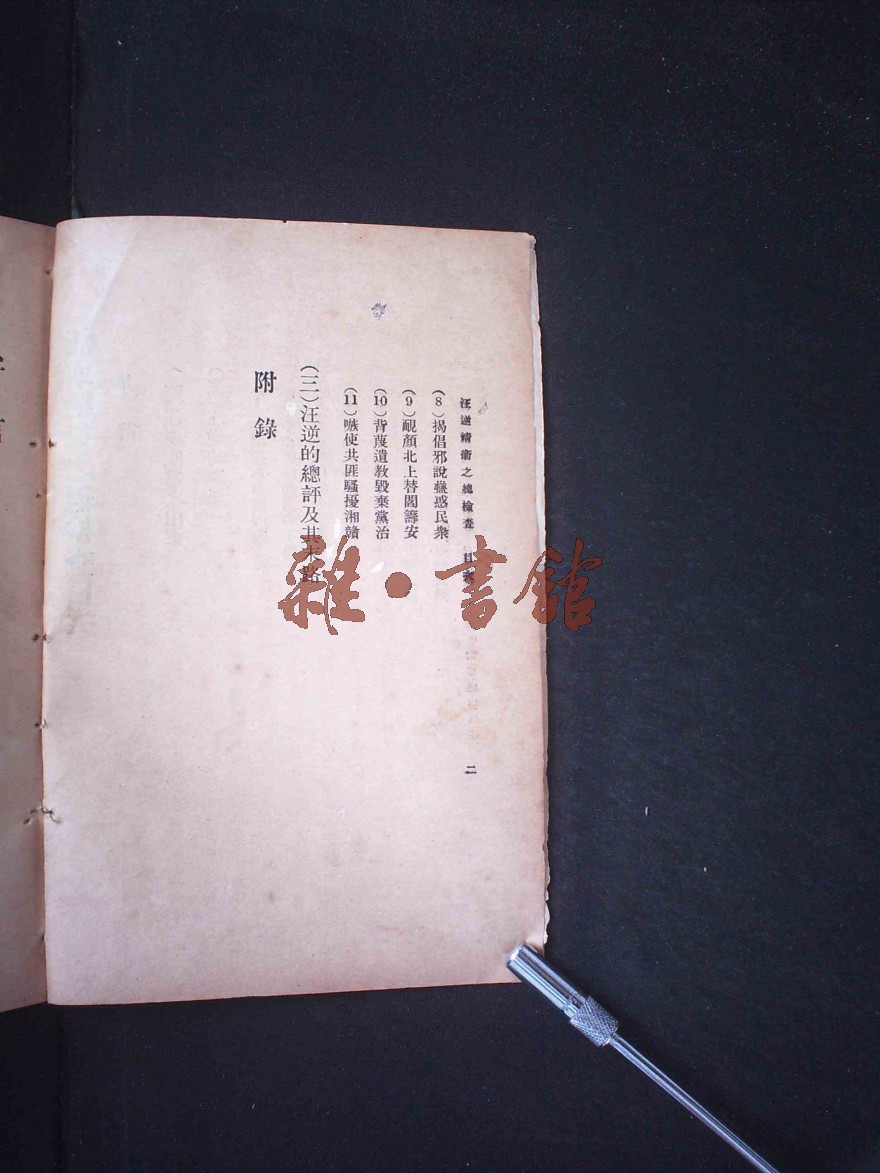 汪逆精衞之總檢查 目次 二
(8)揭倡邪說蠱惑民衆
(9)靦顏北上替閻籌安
(10)背蔑遺教毀棄黨治
(11)嗾使共匪騷擾湘贛
(三)汪逆的總評及其末路
附錄
雜·書館